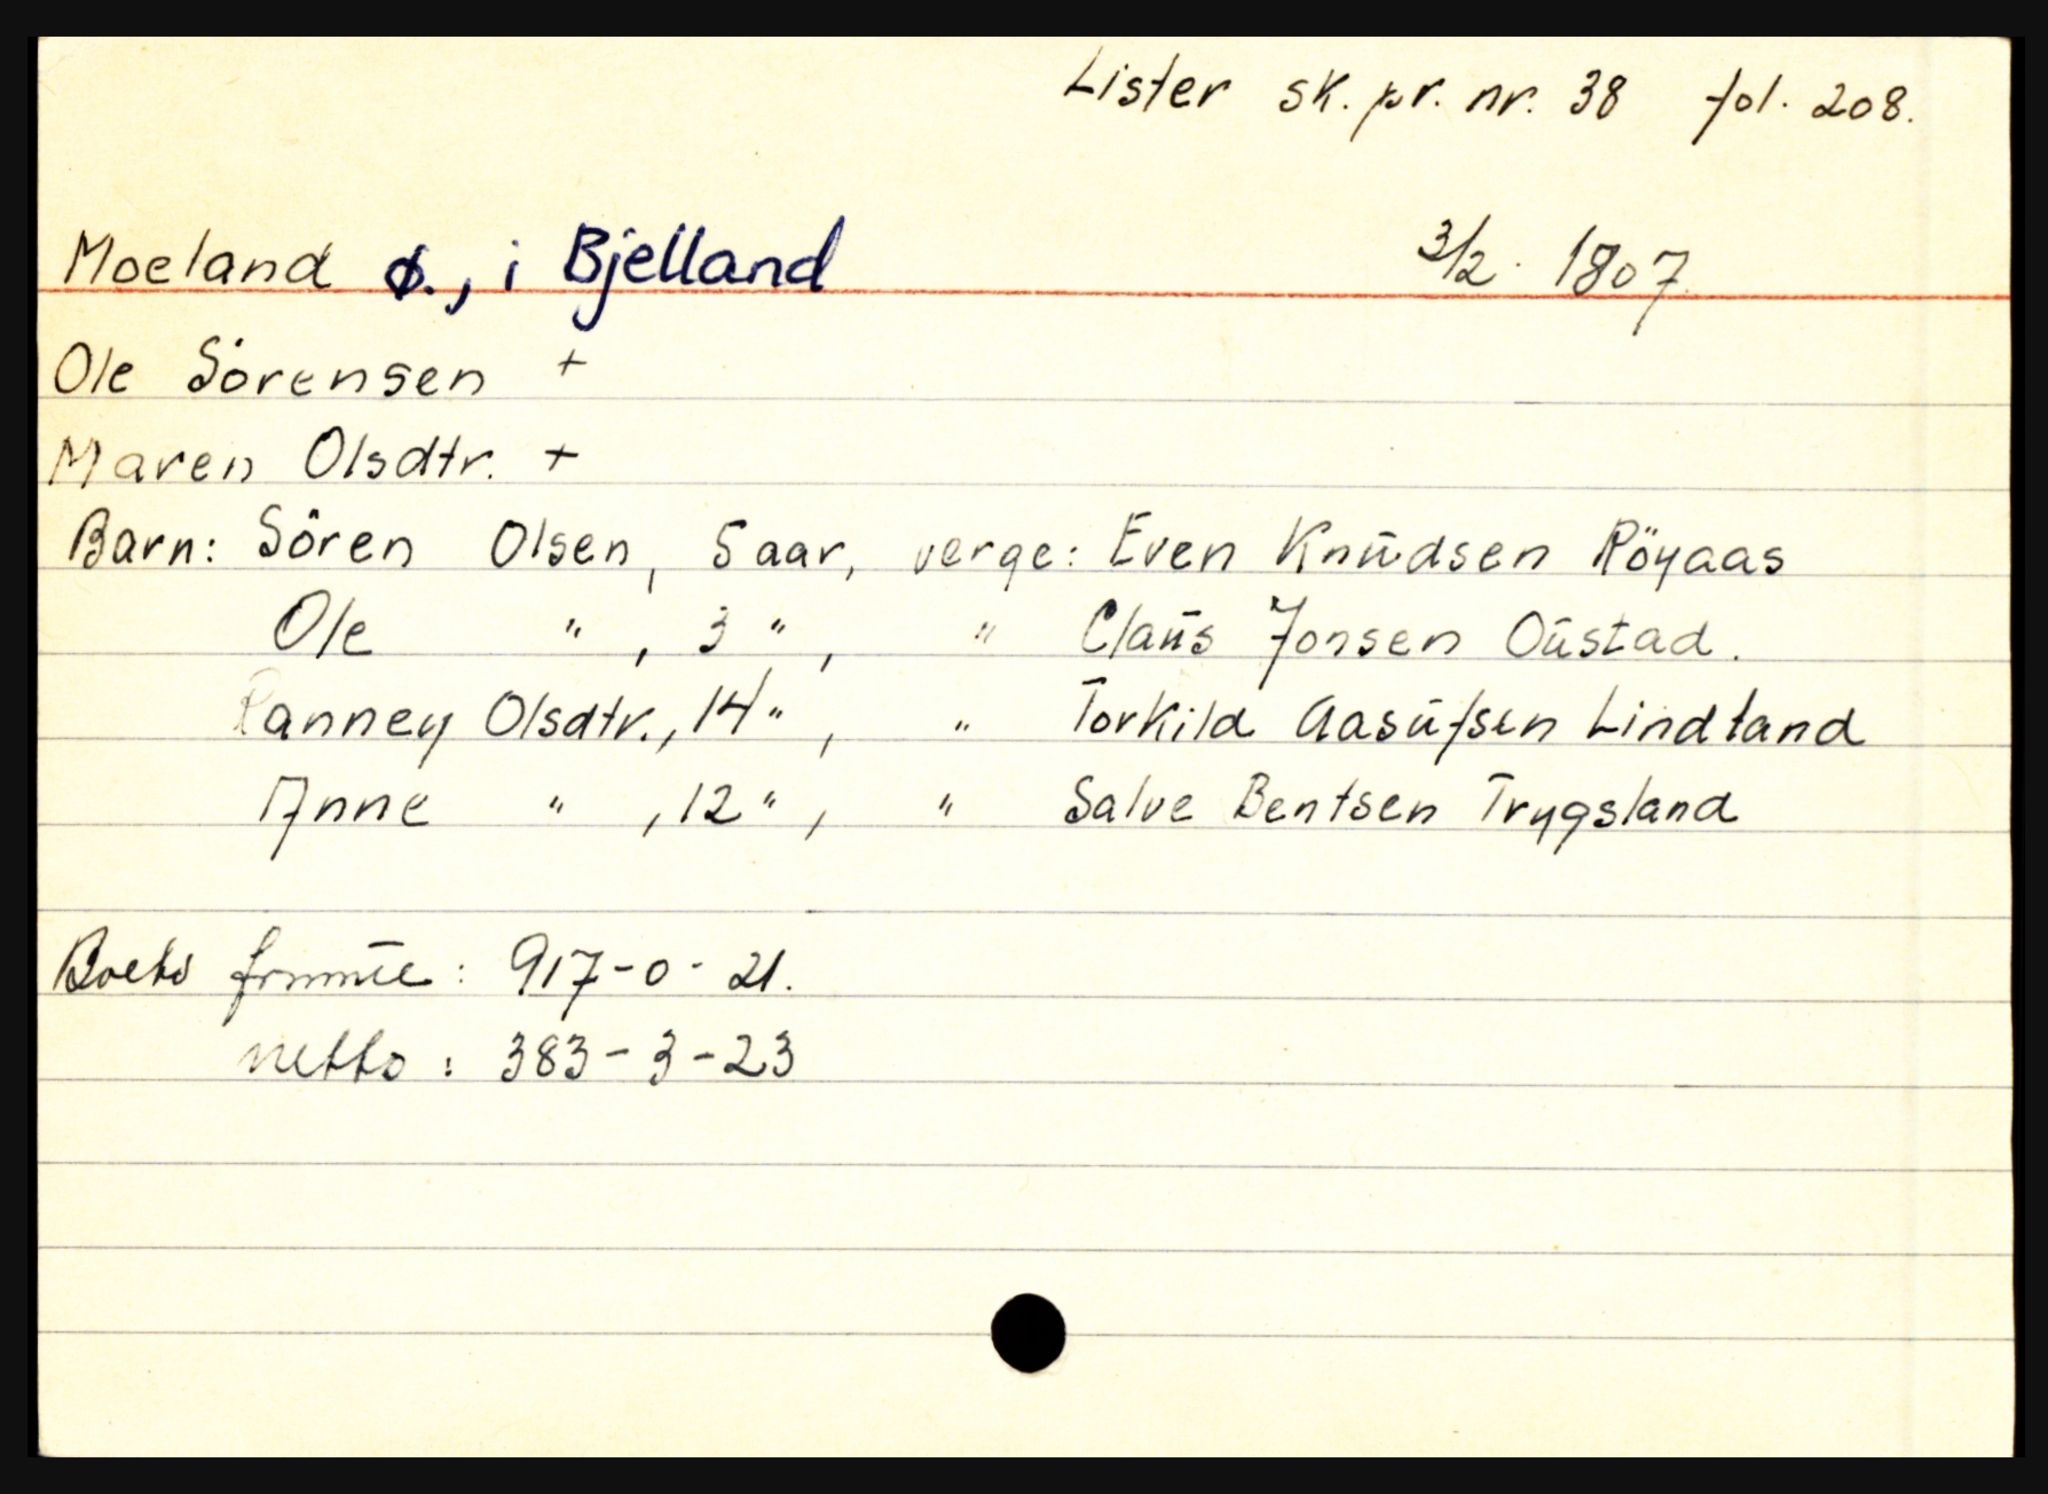 Lister sk. pr. nr. 38 fol. 208.
Moeland ø., i Bjelland 3/2 1807
Ole Sörensen +
Maren Olsdtr. +
Barn: Sören Olsen, 5 aar, verge: Even Knudsen Röyaas
Ole ", 3 ", " Claus Jonsen Oustad.
Ranney Olsdtr., 14 ", " Torkild Aasufsen Lindland
Anne ", 12 ", " Salve Bentsen Trygsland
Boets : 917-0-21.
netto : 383-3-23